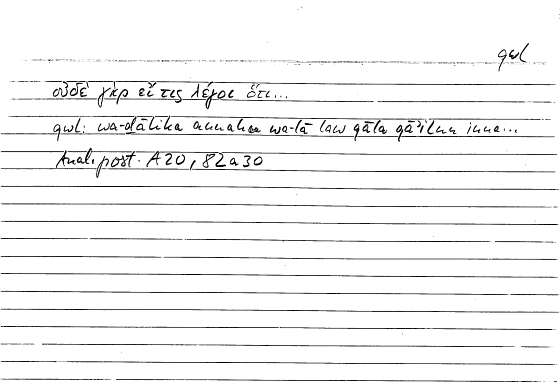 qwl
οὐδὲ γὰρ εἴ τις λέγοι ὅτι...
qwl: wa-ḏālika annahū wa-lā law qāla qāʾilun inna...
Anal. post. A20, 82a30